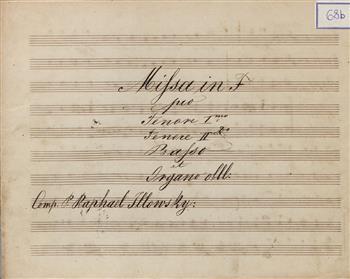 68b
Missa in F
pro
Tenore I.mo
Tenore II.do
Basso
et
Organo obl:
Comp. P. Raphael Illowsky: